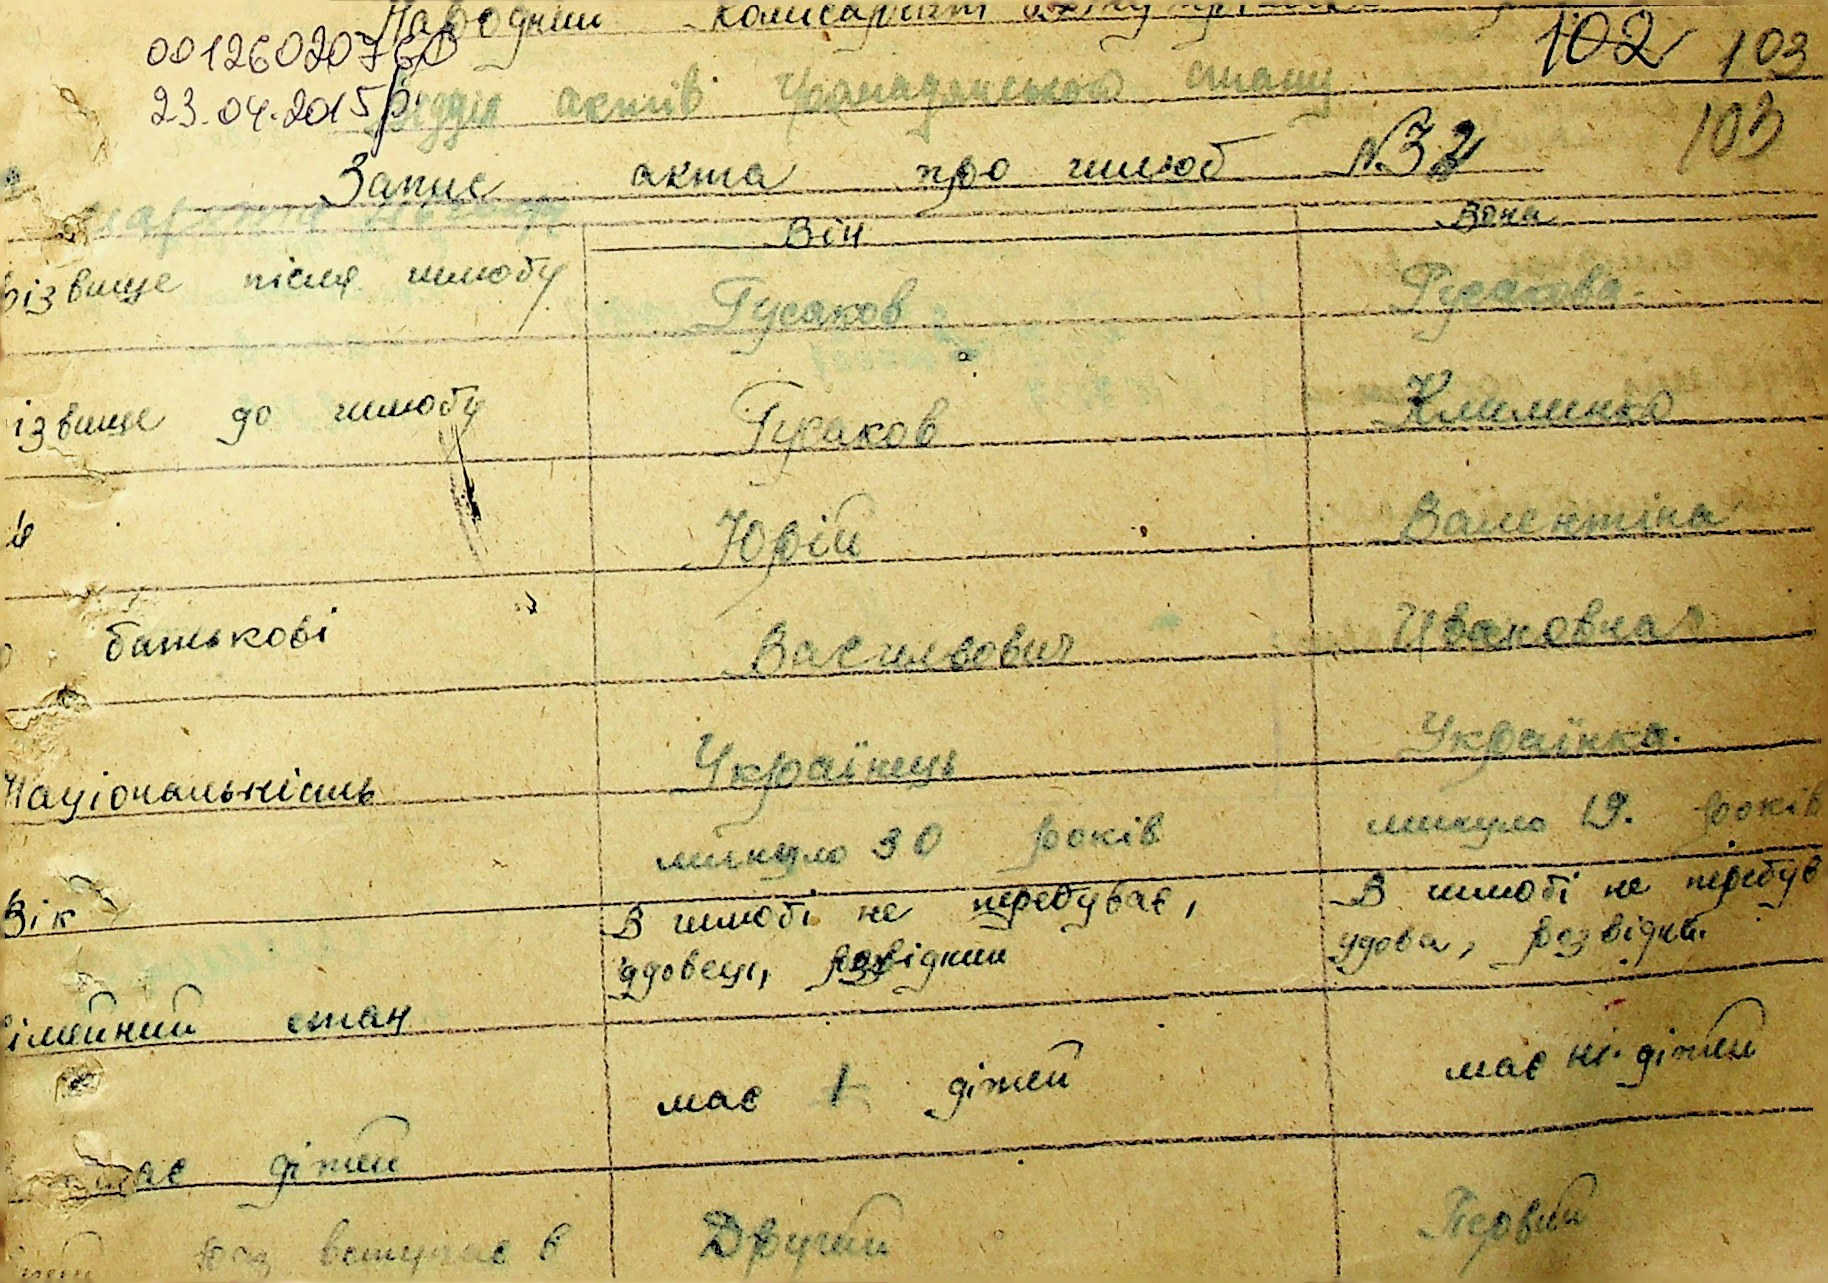 Народний комисаріат
00126020760
102 103
23.04.2015р.
Відділ актів громадянського стану
103
Запис акта про шлюб №32
Він Вона
різвище після шлюбу Гусаков Гусакова.
ізвище до шлюбу Гусаков Клименко
Юрій Валентіна
батькові Васильович Ивановна
Національність Українець Українка.
Вік минуло 30 років минуло 19. років
імейний стан В шлюбі не перебуває, В шлюбі не перебув
вдовець, розвідний удова, розвідна.
має дітей має 1 дітей має ні дітей
раз вступає в Другий Первий